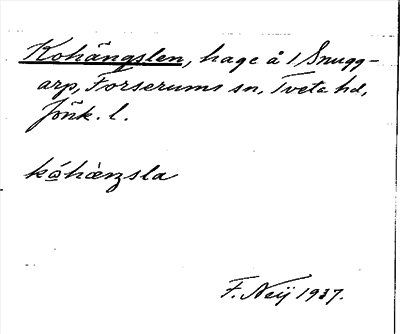 Kohängslen, hage å 1 Snugg-
arp, Forserums sn, Tveta hd,
Jönk. l.
kóhàŋsla
F. Neij 1937.